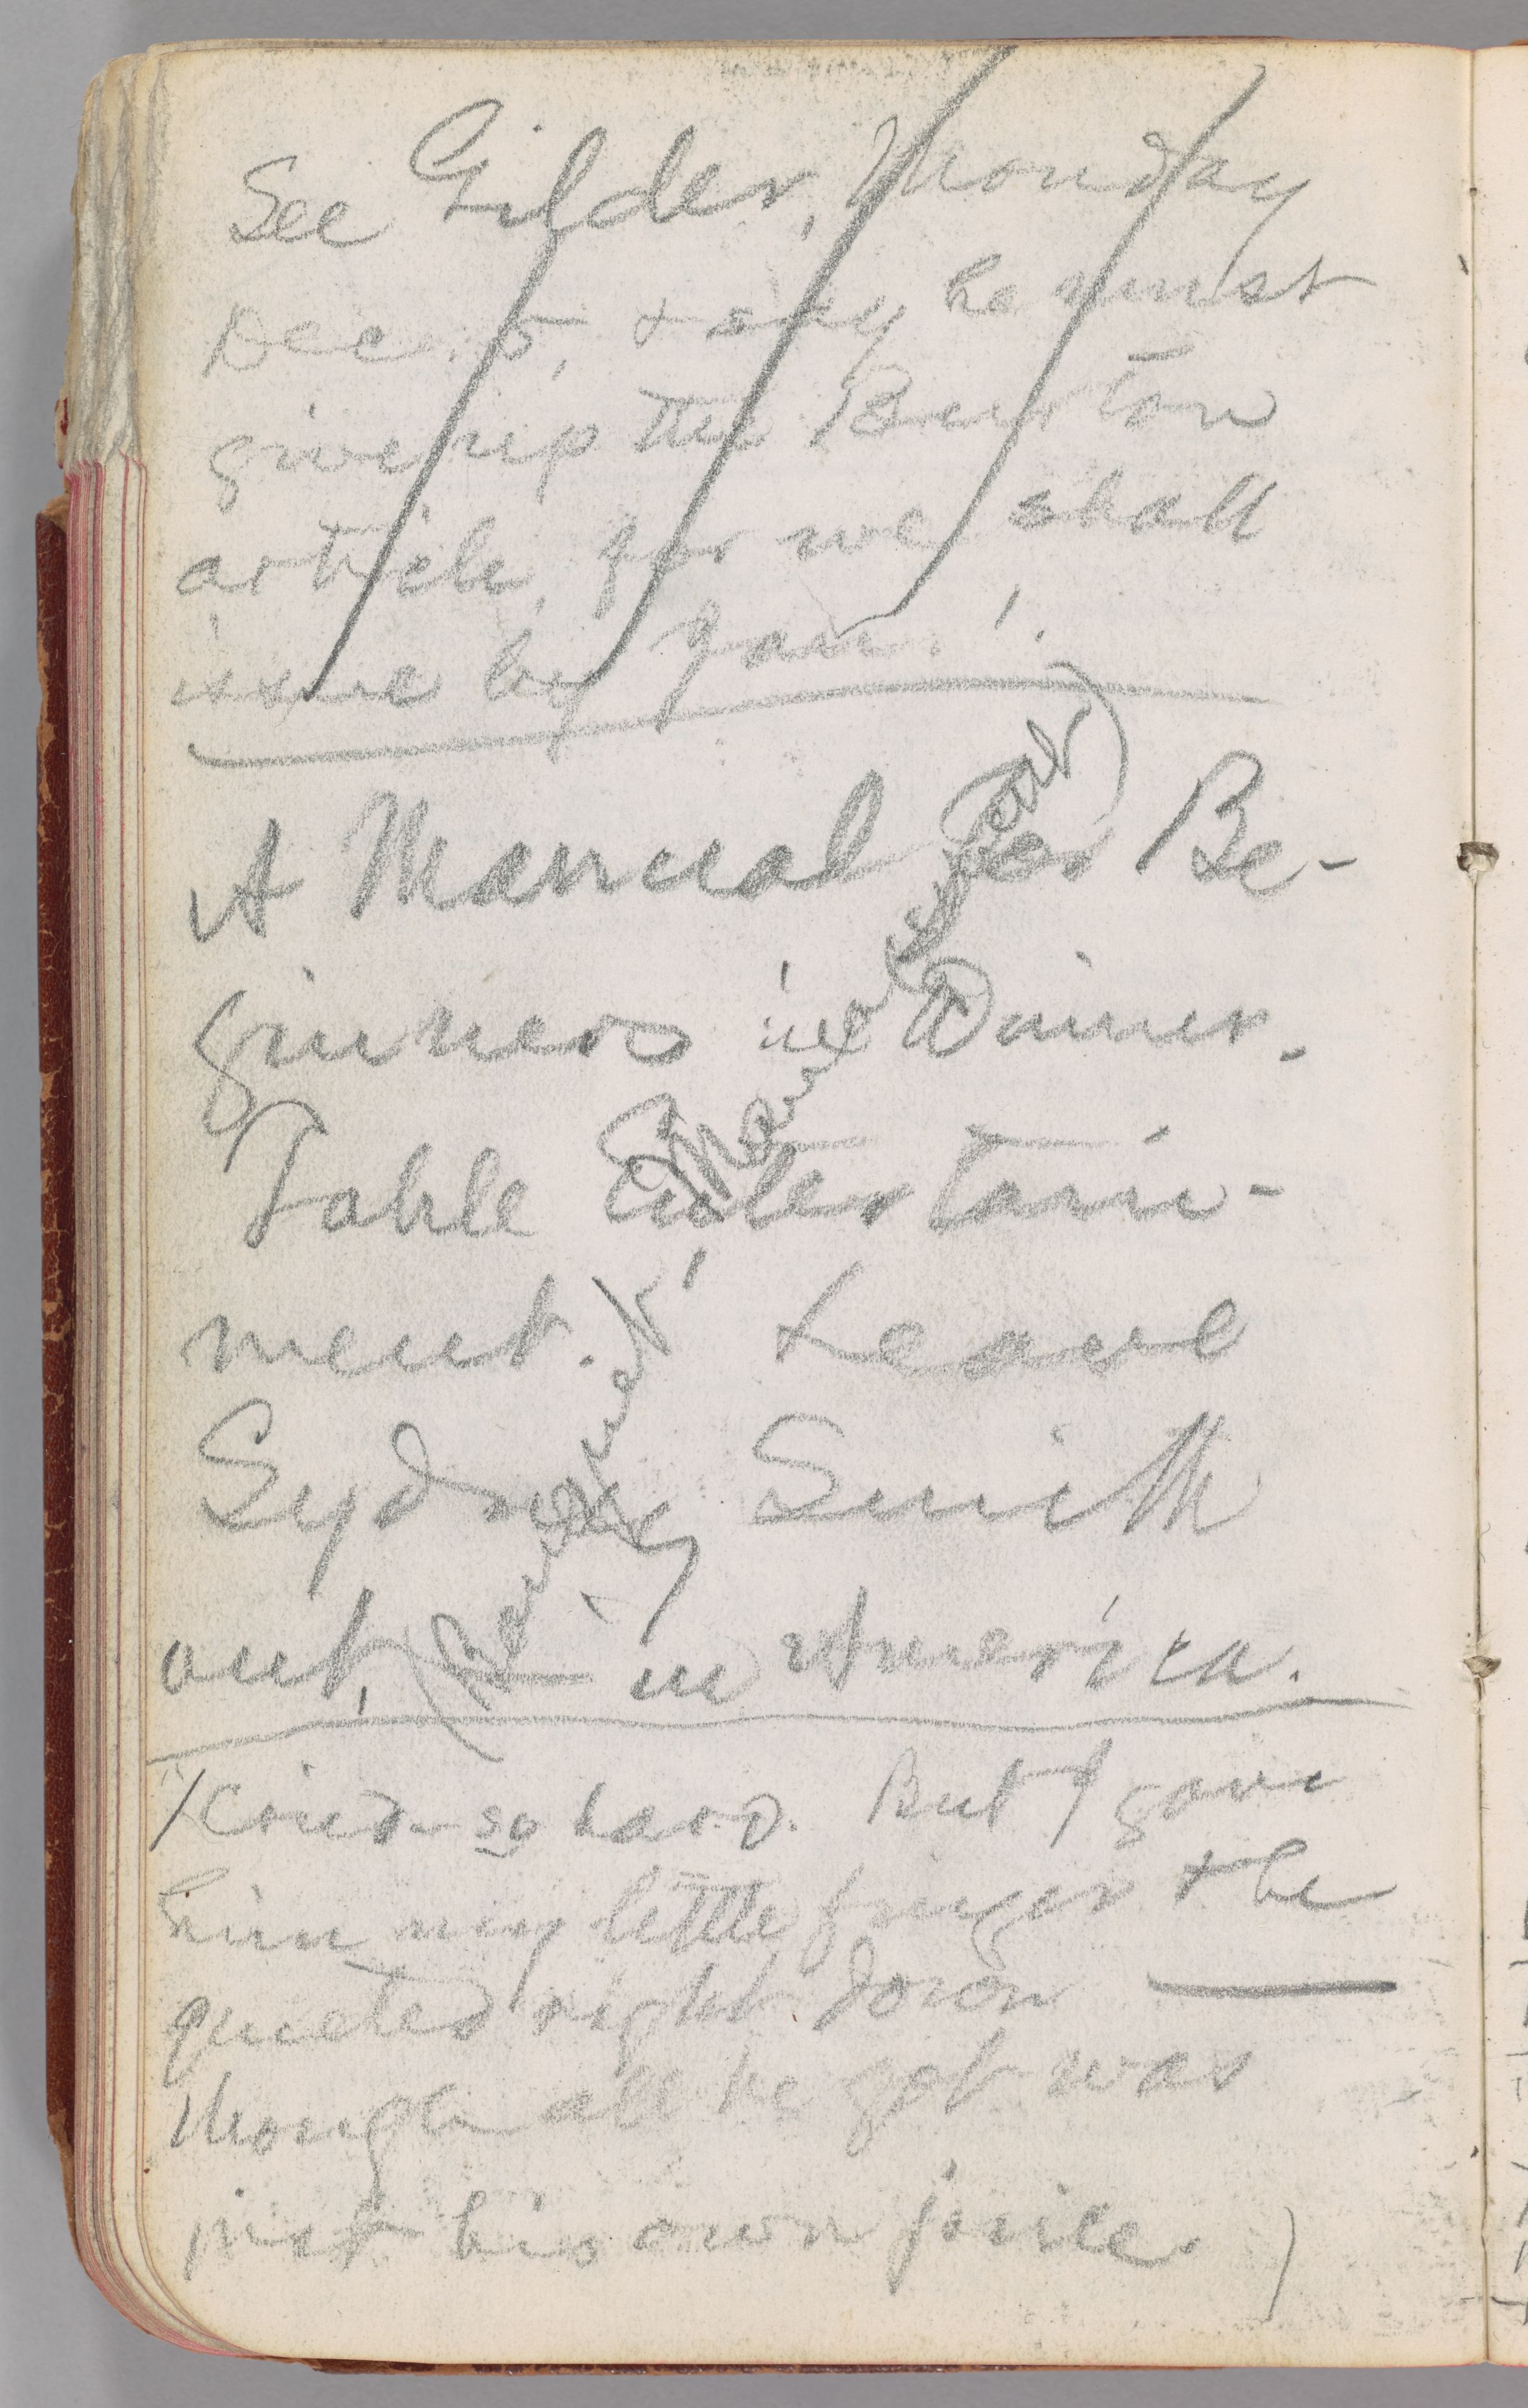 See Gilder, Monday
Dec. 5, & say he must
give up the Burton
article, for we shall
issue by Jan. 1.
A Manual for Be-
ginners in Dinner-
Table Entertain-
ment. Leave
Sydney Smith
out, — in America.
Cried so hard. But I gave
him my little finger & he
quieted right down —
though all he got was
just his own juice.)